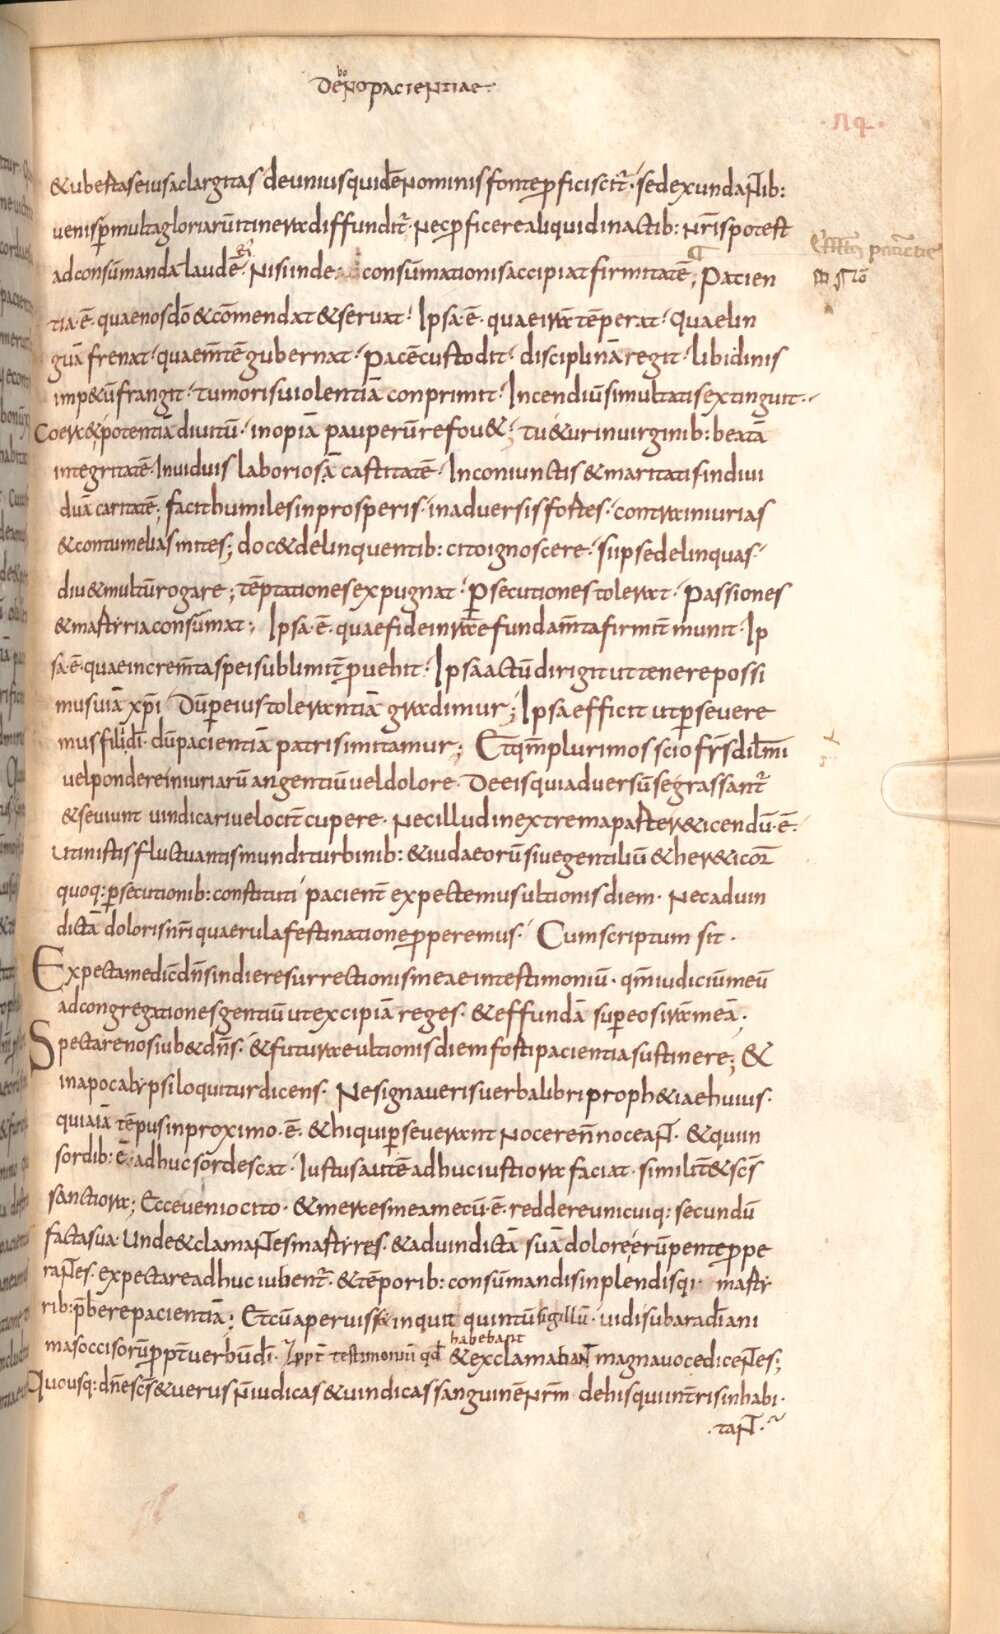 De bono pacientiae·
·nq·
& ubertas eius ac largitas de unius quidē nominis fonte ꝑficiscit̄· sed exundantib:
uenis ꝑ multa gloriarū itinera diffundit̄· nec ꝑficere aliquid in actib: nr̄is potest
ad consūmanda laudē· nisi inde consūmationis accipiat firmitatē; Pacien
tia·ē· quae nos dō & cōmendat & seruat· Ipsa·ē· quae irā tēperat· quae lin
guā frenat· quae m̄tē gubernat· pacē custodit· disciplinā regit· libidinis
imp&ū frangit· tumoris uiolentiā conprimit· Incendiū simultatis extinguit·
Coerc& potentiā diuitū· inopiā pauperū refou&; tu&ur in uirginib: beatā
integritatē· In uiduis laboriosā castitatē· In coniunctis & maritatis indiui
duā caritatē; facit humiles in prosperis· in aduersis fortes· contra iniurias
& contumelias mites; doc& delinquentib: cito ignoscere· si ipse delinquas·
diu & multū rogare; tēptationes expugnat· ꝑsecutiones tolerat· Passiones
& martyria consūmat; Ipsa·ē· quae fidei nr̄ae fundam̄ta firmit̄ munit· Ip
sa·ē· quae increm̄ta spei sublimit̄ ꝓuehit· Ipsa actū dirigit ut tenere possi
mus uiā xp̄i· Dū ꝑ eius tolerantiā gradimur; Ipsa efficit ut ꝑseuere
mus filii dī· dū pacientiā patris imitamur; Et qm̄ plurimos scio fr̄s dil̄mi
uel pondere iniuriarū angentiū uel dolore· De eis qui aduersū se grassant̄
& seuiunt uindicari uelocit̄ cupere· Nec illud in extrema parte r&icendū·ē·
Ut in istis fluctuantis mundi turbinib: & iudaeorū siue gentiliū & her&icoꝝ
quoq: ꝑsecutionib: constituti pacient̄ expectemus ultionis diem· Nec ad uin
dictā doloris nr̄i quaerula festinatione ꝓperemus· Cum scriptum sit·
Expecta me dic̄ dn̄s in die resurrectionis meae in testimoniū· qm̄ iudiciū meū
ad congregationes gentiū ut excipiā reges· & effundā super eos irā meā;
Spectare nos iub& dn̄s· & futurae ultionis diem forti pacientia sustinere; &
in apocalypsi loquitur dicens· Ne signaueris uerba libri proph&iae huius·
quia iā tēpus in proximo·ē· & hi qui ꝑseuerant nocere n̄ noceant· & qui in
sordib:·ē· adhuc sordescat· Iustus autē adhuc iustiora faciat· similit̄ & sc̄s
sanctiora; Ecce uenio cito· & merces mea mecū·ē· reddere unicuiq: secundū
facta sua· Unde & clamantes martyres· & ad uindictā suā dolore erūpente ꝓpe
rantes· expectare adhuc iubent̄· & tēporib: consūmandis inplendisq· marty
rib: p̄bere pacientiā; Et cū aperuiss& inquit quintū sigillū· uidi sub ara dī ani
mas occisorū ꝓpt̄ uerbū dī· & ꝓpt̄ testimoniū qd̄ habebant & exclamabant magna uoce dicentes;
Quousq: dn̄e sc̄s & uerus n̄ iudicas & uindicas sanguinē nr̄m· de his qui in t̄ris inhabi·
tant·